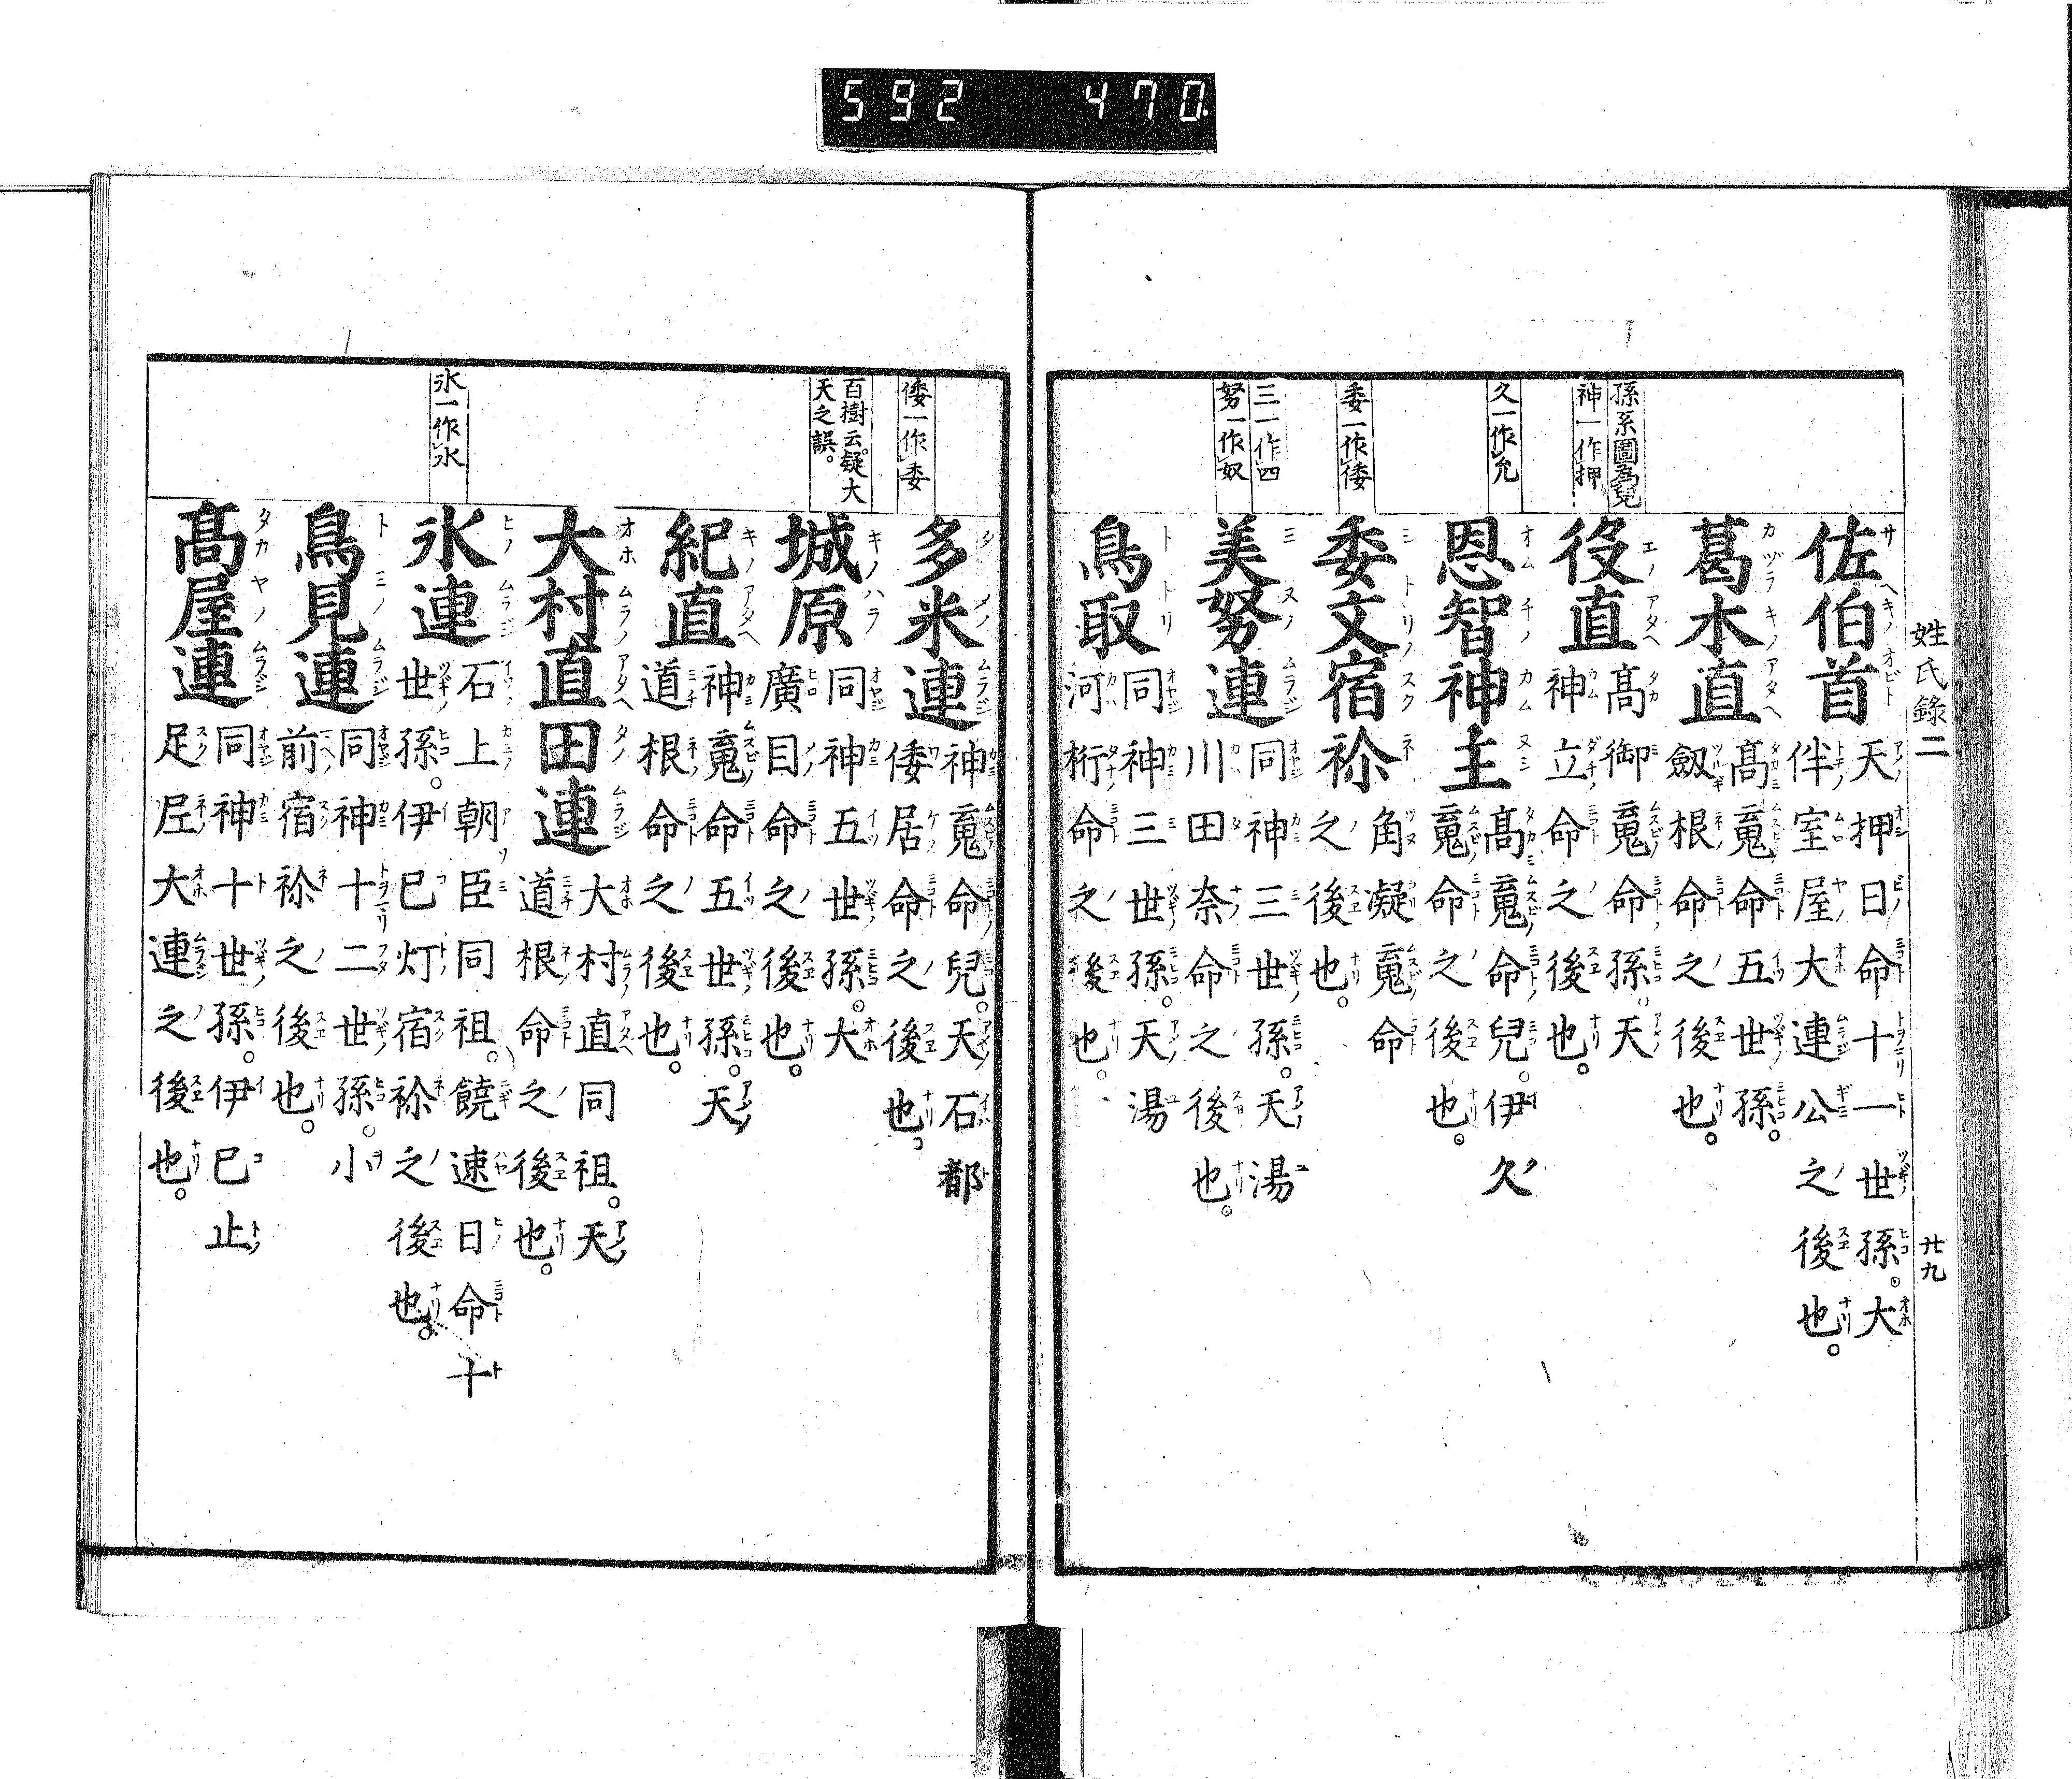 592 470.
姓氏錄二
廿九
孫系圖為兒
神一作押
久一作允
委一作倭
三一作四
努一作奴
佐伯首
天押日命十一世孫。大
伴室屋大連公之後也。
葛木直
髙䰟命五世孫。
劔根命之後也。
役直
髙御䰟命孫。天
神立命之後也。
恩智神主
髙䰟命兒。伊久
䰟命之後也。
委文宿祢
角凝䰟命
之後也。
美努連
同神三世孫。天湯
川田奈命之後也。
鳥取
同神三世孫。天湯
河桁命之後也。
倭一作委
百樹云。疑大
天之誤。
氷一作水
多米連
神䰟命兒。天石都
倭居命之後也。
城原
同神五世孫。大
廣目命之後也。
紀直
神䰟命五世孫。天
道根命之後也。
大村直田連
大村直同祖。天
道根命之後也。
氷連
石上朝臣同祖。饒速日命十
世孫。伊己灯宿祢之後也。
鳥見連
同神十二世孫。小
前宿祢之後也。
髙屋連
同神十世孫。伊己止
足尼大連之後也。